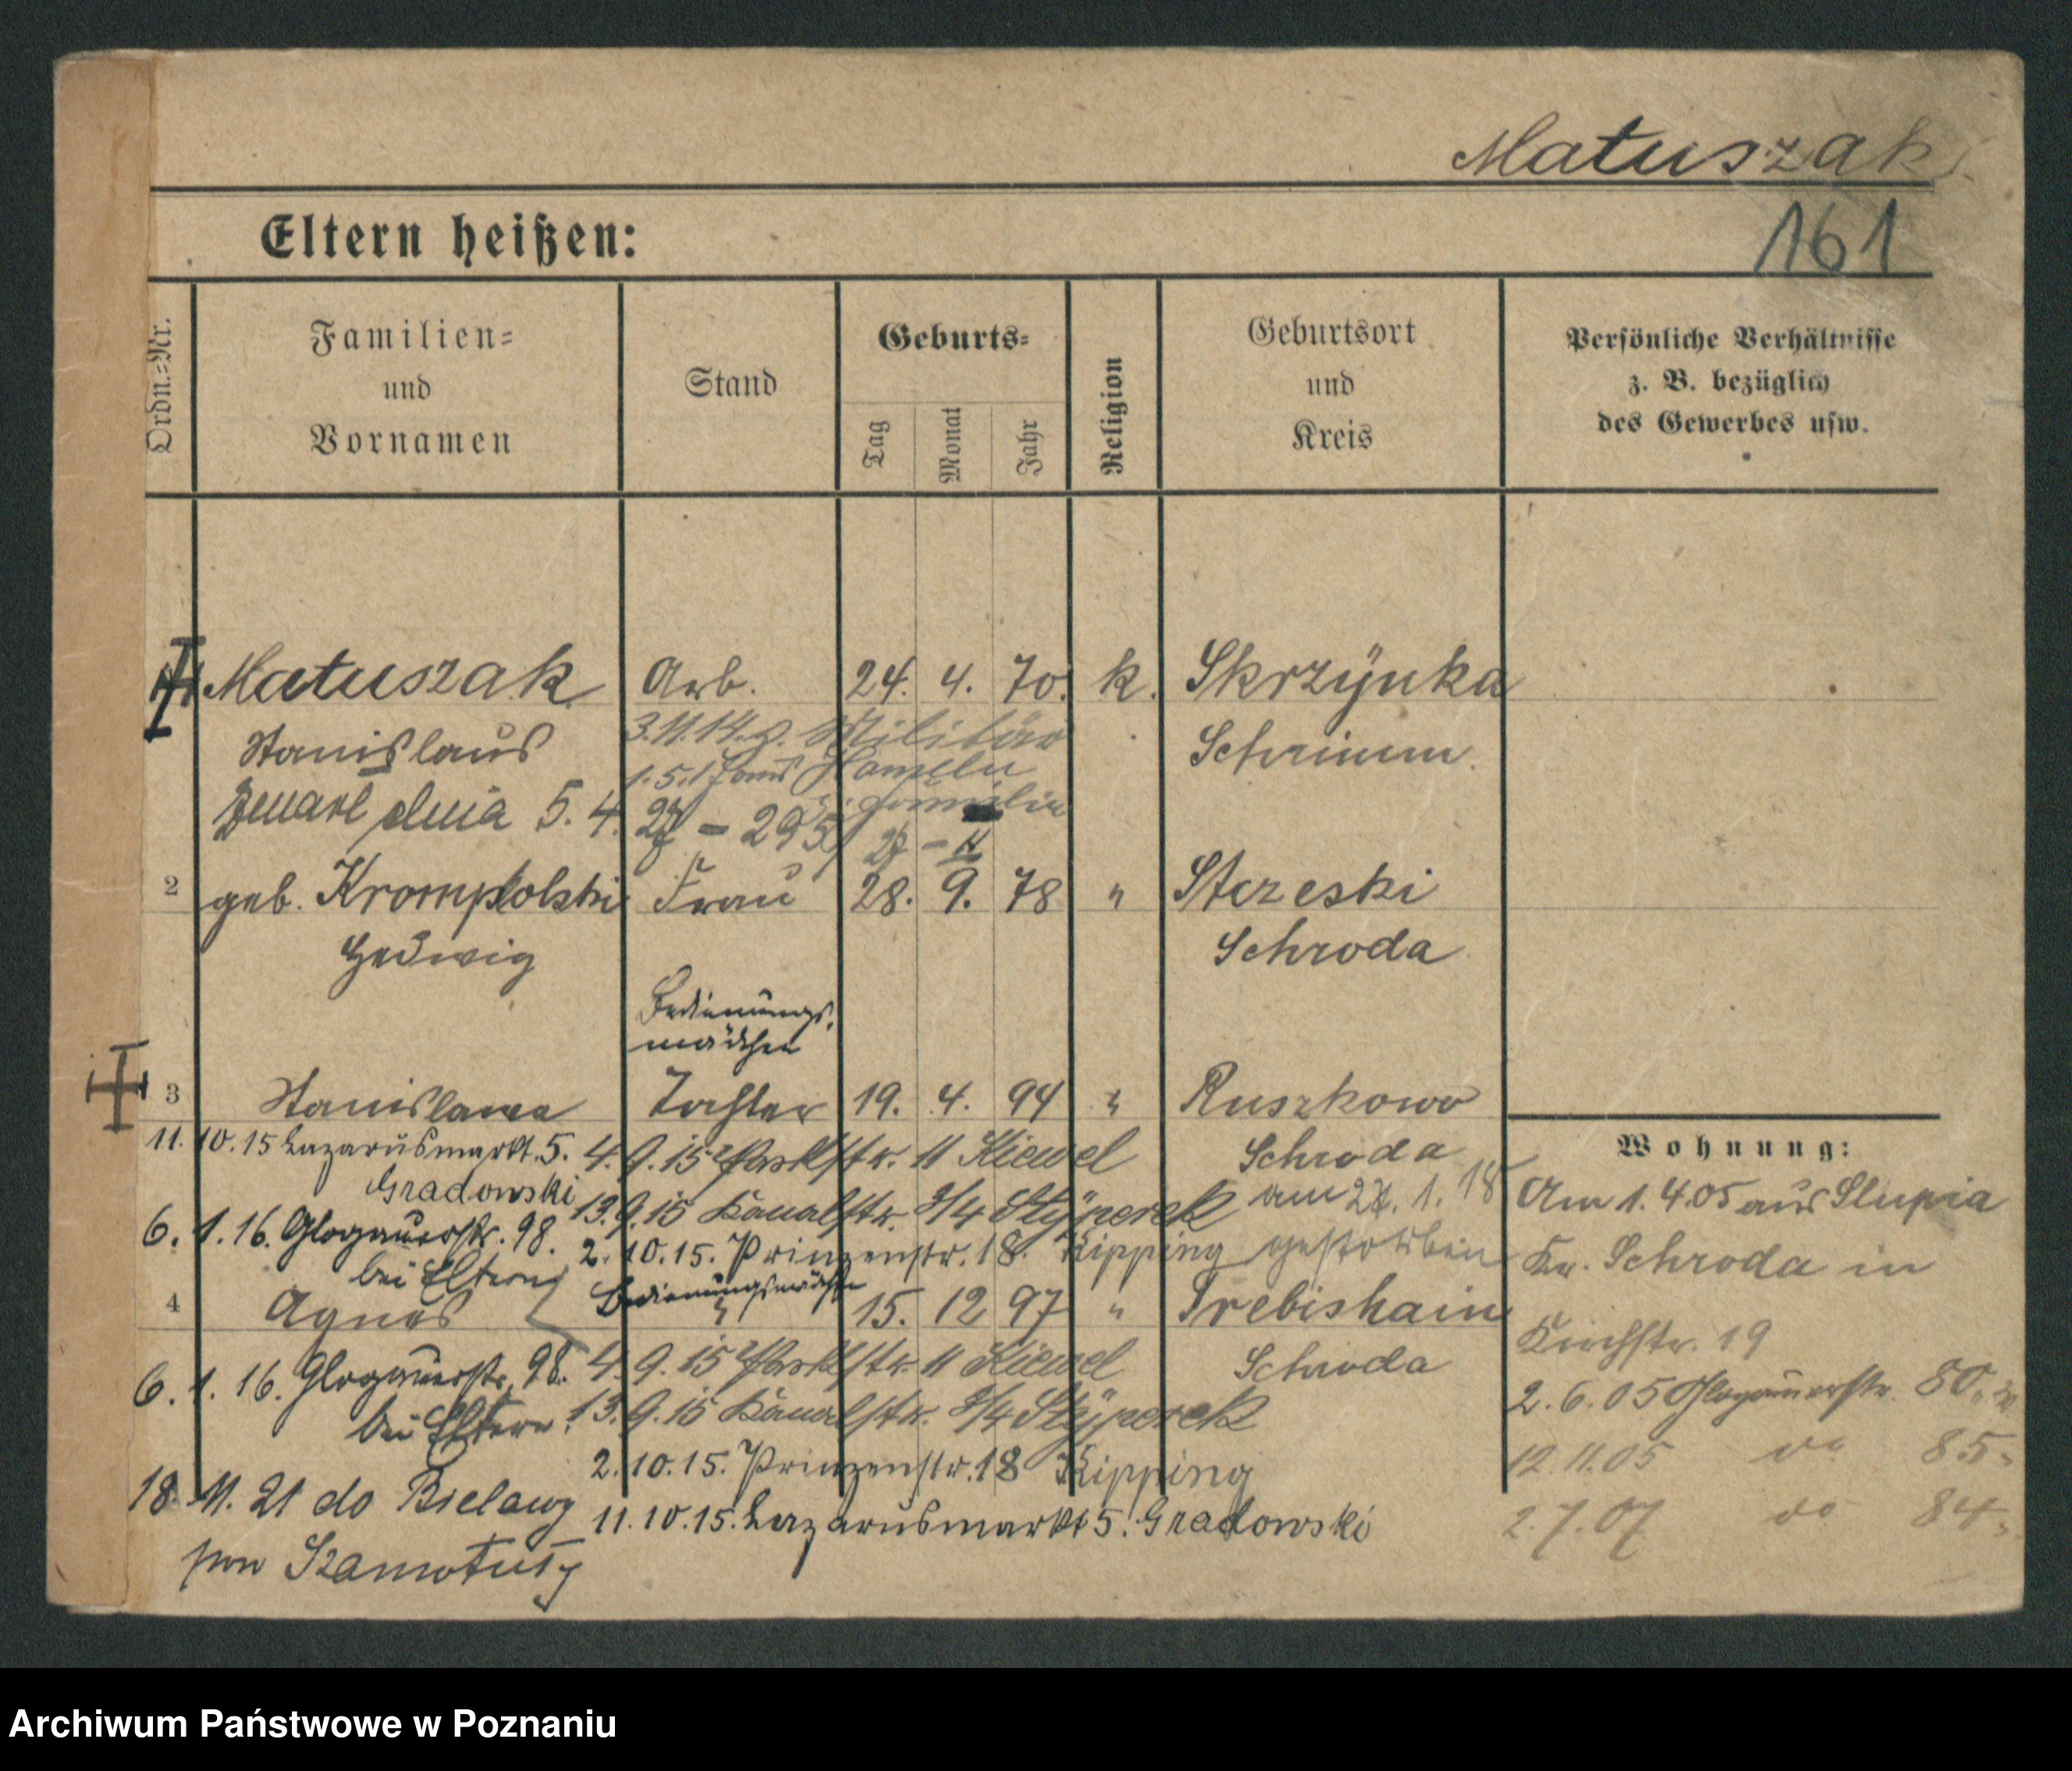 Matuszak
161
Eltern heißen:
Ordn.-Nr.
Familien-
und
Vornamen
Stand
Geburts-
Tag
Monat
Jahr
Religion
Geburtsort
und
Kreis
Persönliche Verhältnisse
z. B. bezüglich
des Gewerbes usw.
Matuszak Arb. 24. 4. 70. k. Skrzÿnka
Stanislaus Schrimm.
3.11.14. z. Militär
1.5.17 aus Hameln
z. Familie
Zmarł dnia 5. 4. 27 - 295/27 - II
2 geb. Krompolski Frau 28. 9. 78 " Strzeski
Hedwig Schroda
Bedienungs-
mädchen
3 Stanislawa Tochter 19. 4. 94 " Ruszkowo
Schroda
11.10.15 Lazarusmarkt. 5. Gradowski
4.9.15 Parkstr. 11 Kiewel
am 27. 1. 18
gestorben
13.9.15 Kanalstr. 3/4 Stÿperek
6.1.16. Glogauerstr. 98. bei Eltern
2.10.15. Prinzenstr. 18. Kipping
Bedienungsmädchen
4 Agnes " 15. 12 97 " Trebishain
Schroda
4.9.15 Parkstr. 11 Kiewel
6.1.16. Glogauerstr. 98. bei Eltern.
13.9.15 Kanalstr. 3/4 Stÿperek
2.10.15. Prinzenstr. 18 Kipping
18.11.21 do Bielawy
pow Szamotuły
11.10.15. Lazarusmarkt 5. Gradowski
Wohnung:
Am 1.4.05 aus Slupia
Kr. Schroda in
Kirchstr. 19
2.6.05 Glogauerstr. 80.
12.11.05 do 85
2.7.07 do 84
Archiwum Państwowe w Poznaniu